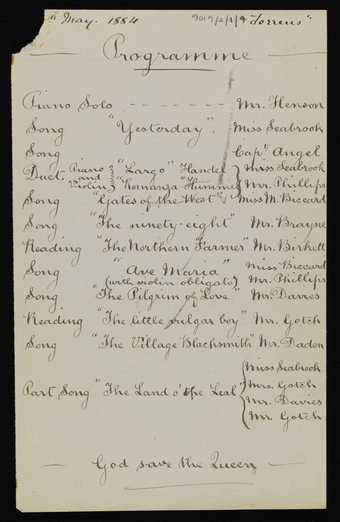 May. 1884 9019/2/1/9 "Torrens"
Programme
Piano Solo - - - - - - - Mr. Henson
Song "Yesterday". Miss Seabrook
Song Capt Angel
Duet, Piano and Violin { "Largo" Handel Miss Seabrook
"Romanza" Hummel Mr. Phillips
Song "Gates of the West" Miss M. Biccard
Song "The ninety-eight" Mr. Brayne
Reading "The Northern Farmer" Mr. Birkett
Song "Ave Maria" Miss Biccard
(with violin obligato) Mr. Phillips
Song "The Pilgrim of Love" Mr. Davies
Reading "The little vulgar boy" Mr. Gotch
Song "The Village Blacksmith" Mr. Daden
Miss Seabrook
Part Song "The Land o' the Leal" Mrs. Gotch
Mr. Davies
Mr. Gotch
God save the Queen